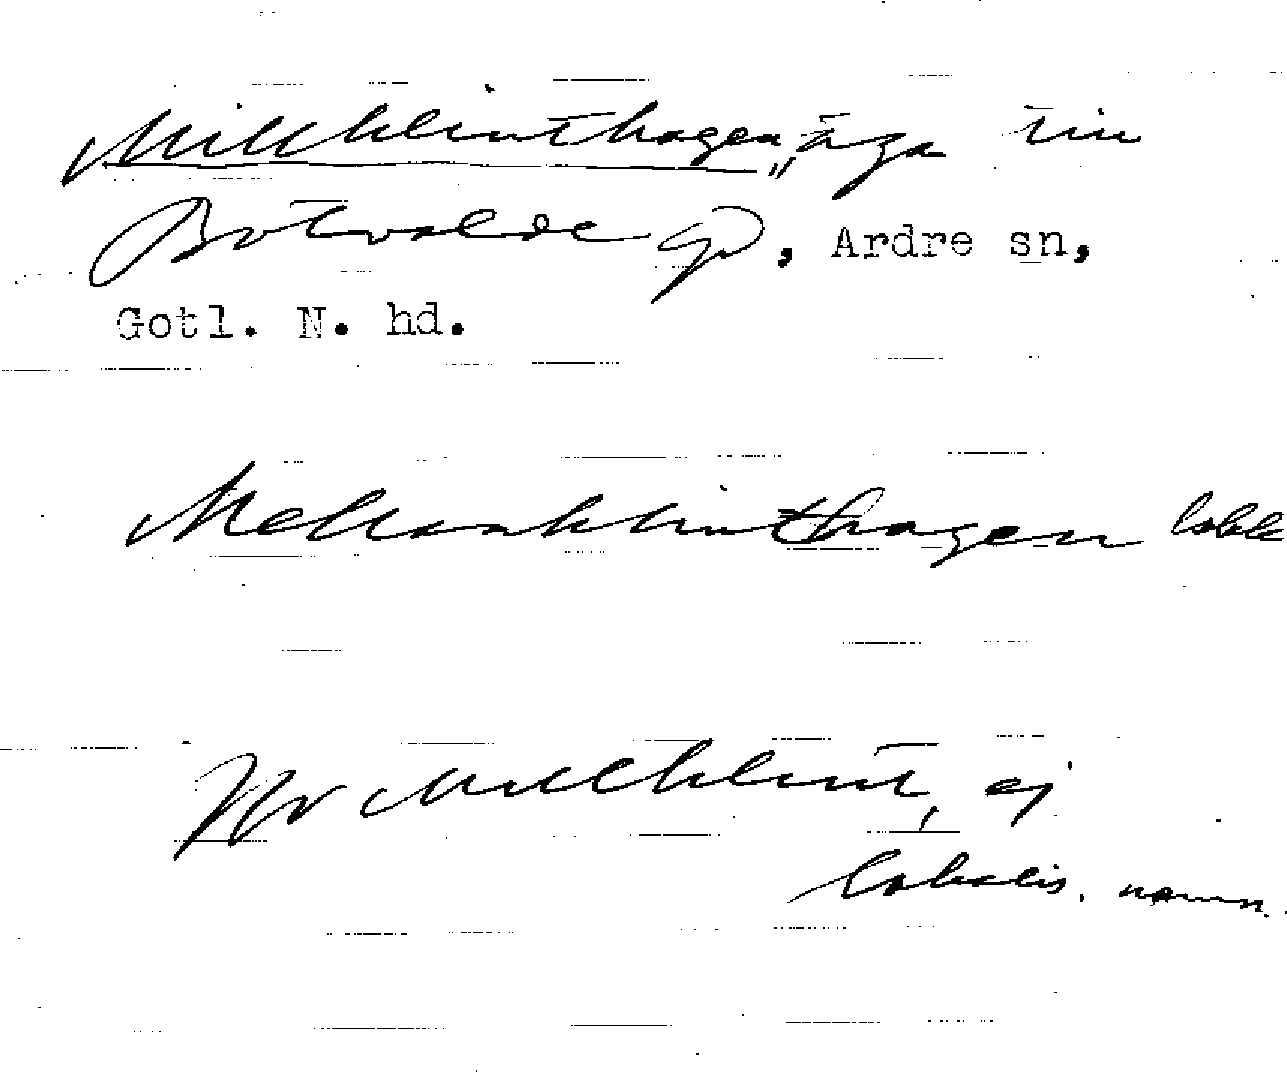 Millklinthagen, äga till
Botvalde gd, Ardre sn,
Gotl. N. hd.
Mellanklinthagen
Millklint, ej
lokalis. namn.